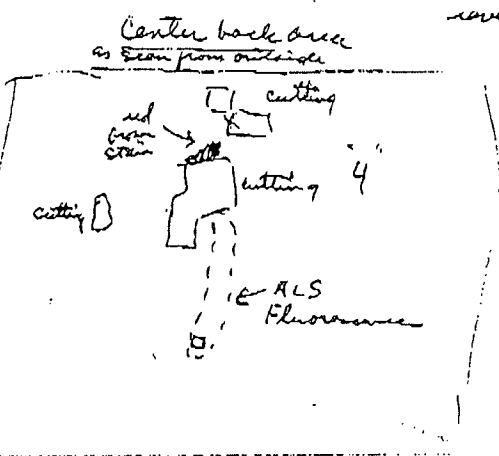 Center back area
as seen from outside
cutting
red
brown
stain
cutting
"4"
cutting
ALS
Fluorescence